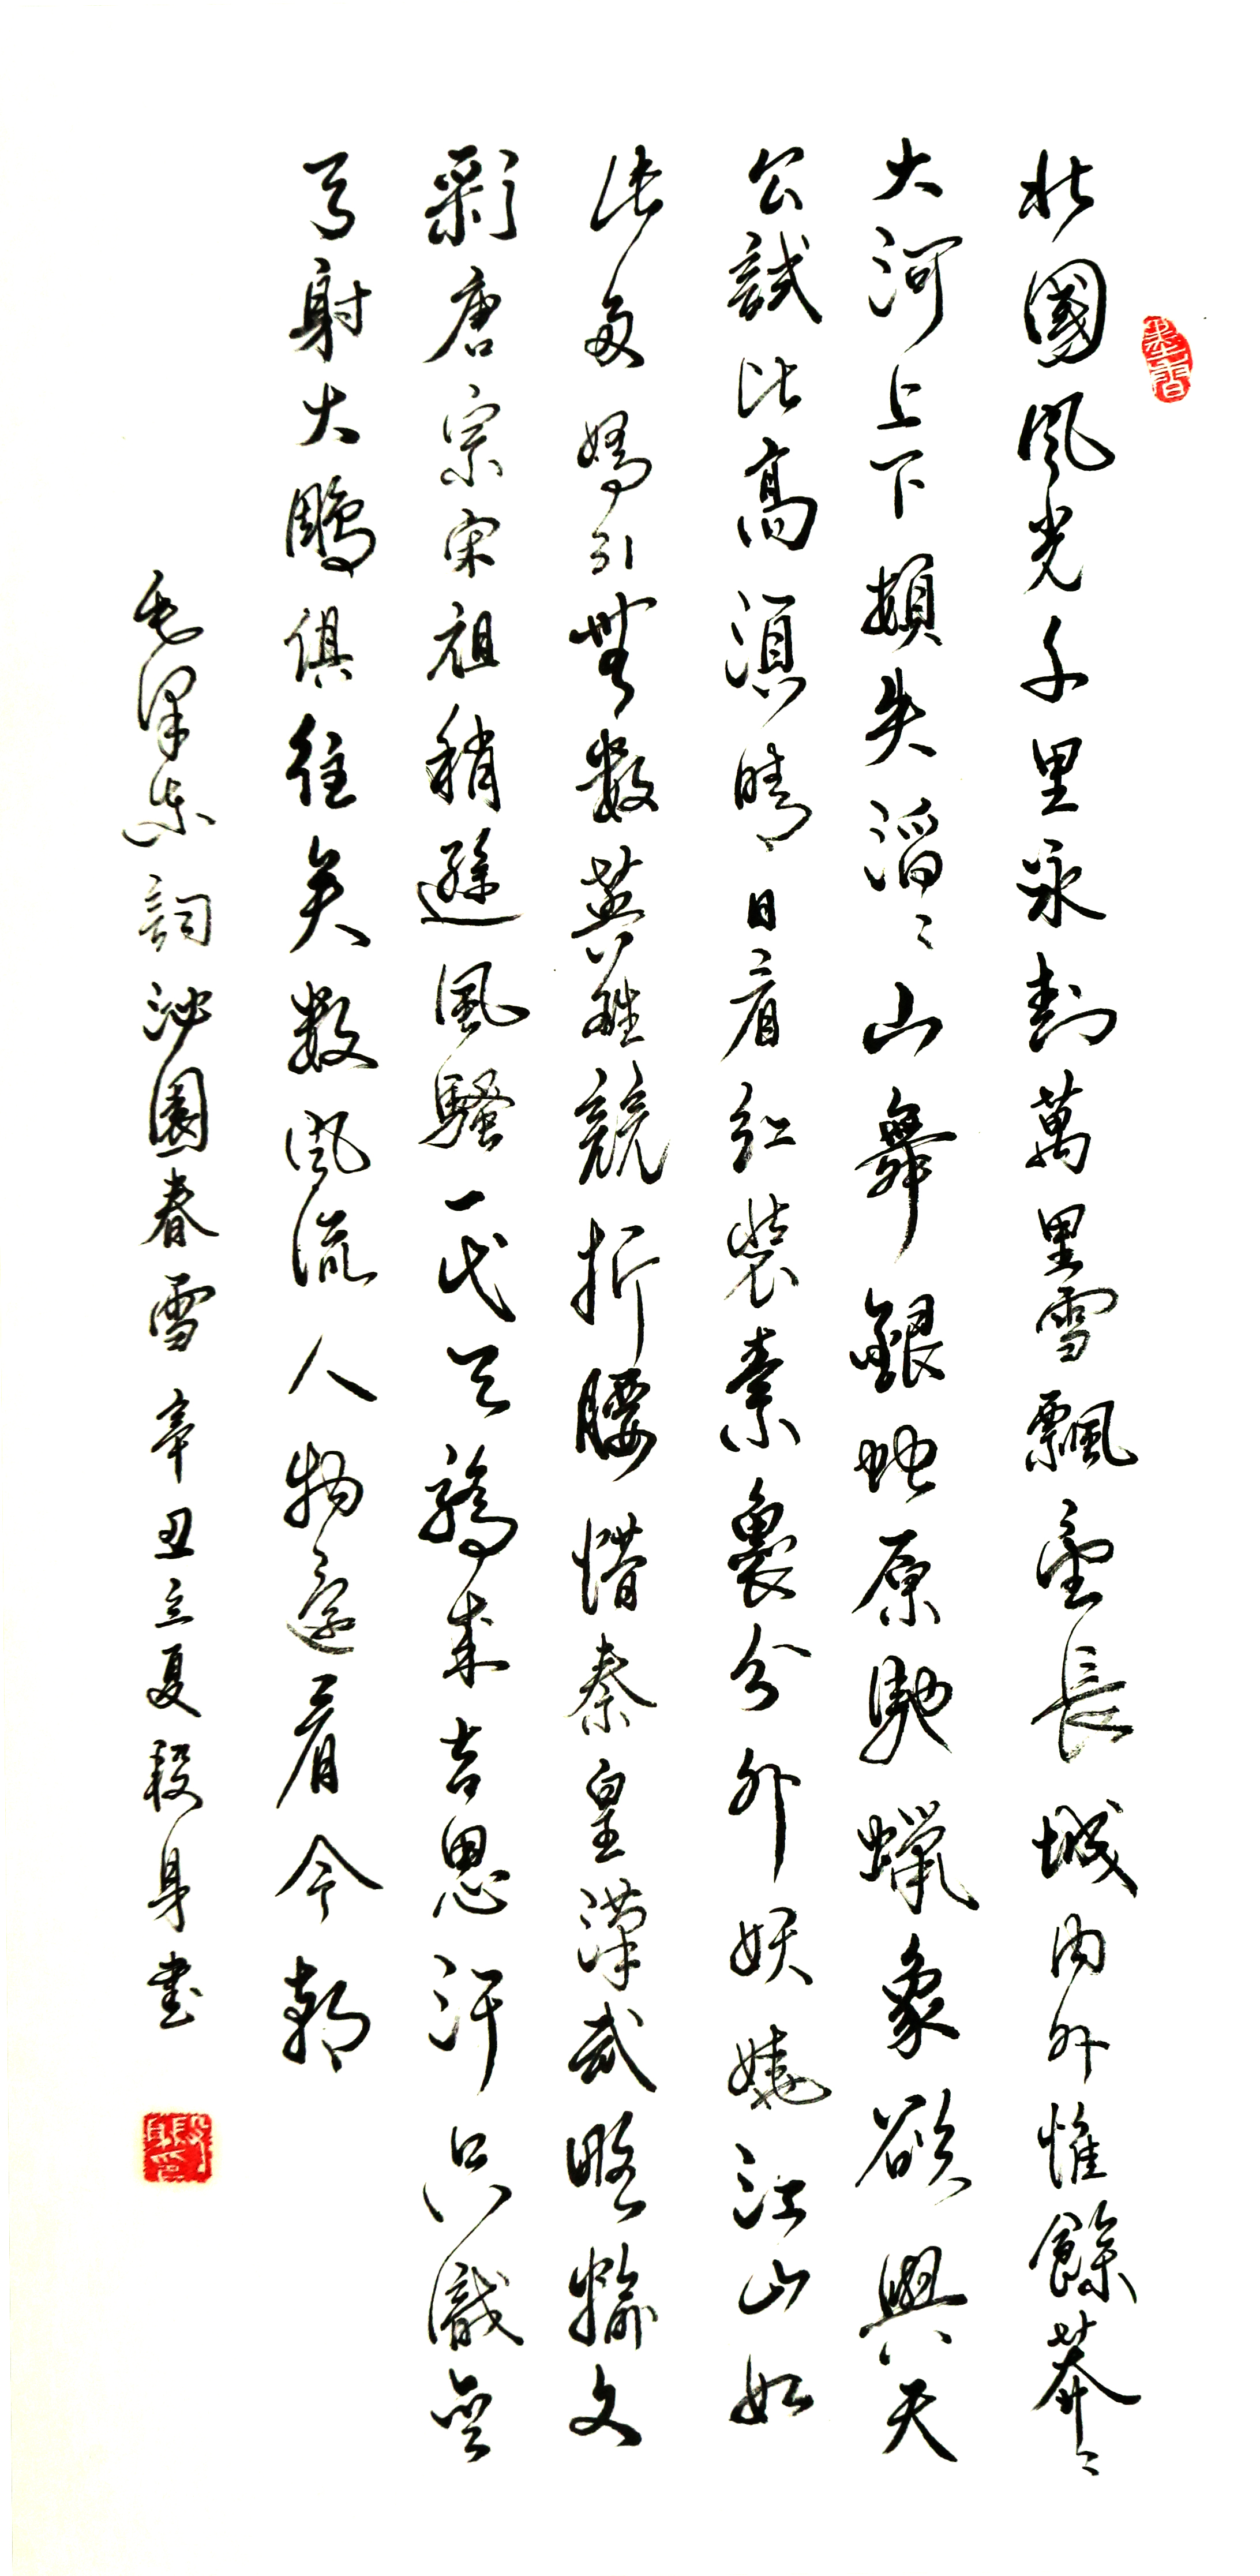 墨香
北國風光千里氷封萬里雪飄望長城內外惟餘莽〻
大河上下頓失滔〻山舞銀蛇原馳蠟象欲與天
公試比高須晴日看紅裝素裹分外妖嬈江山如
此多嬌引無數英雄競折腰惜秦皇漢武略輸文
彩唐宗宋祖稍遜風騷一代天驕成吉思汗只識彎
弓射大鵰俱往矣數風流人物還看今朝
毛澤東詞沁園春雪 辛丑立夏殷身書